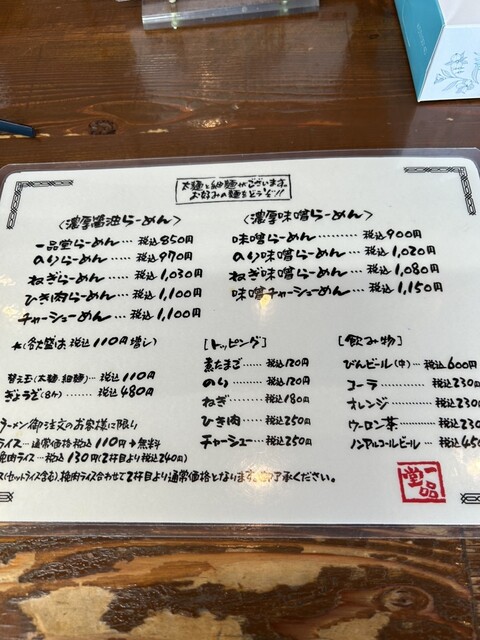 太麺と細麺がございます。
お好みの麺をどうぞ!!
〈濃厚醤油らーめん〉
一品堂らーめん…税込850円
のりらーめん……税込970円
ねぎらーめん……税込1,030円
ひき肉らーめん…税込1,100円
チャーシューめん…税込1,100円
*(各大盛は税込110円増し)
替え玉(太麺・細麺)…税込110円
ぎょうざ(8ヶ)……税込480円
ラーメン御注文のお客様に限り
ライス…通常価格税込110円→無料
挽肉ライス…税込130円(2杯目より税込240円)
ス(セットライス含む)、挽肉ライス合わせて2杯目より通常価格となります。ご了承ください。
〈濃厚味噌らーめん〉
味噌らーめん…………税込900円
のり味噌らーめん……税込1,020円
ねぎ味噌らーめん……税込1,080円
味噌チャーシューめん…税込1,150円
[トッピング]
煮たまご……税込120円
のり…………税込120円
ねぎ…………税込180円
ひき肉………税込250円
チャーシュー…税込250円
[飲み物]
びんビール(中)…税込600円
コーラ…………税込230円
オレンジ………税込230円
ウーロン茶……税込230
ノンアルコールビール…税込450
一品堂